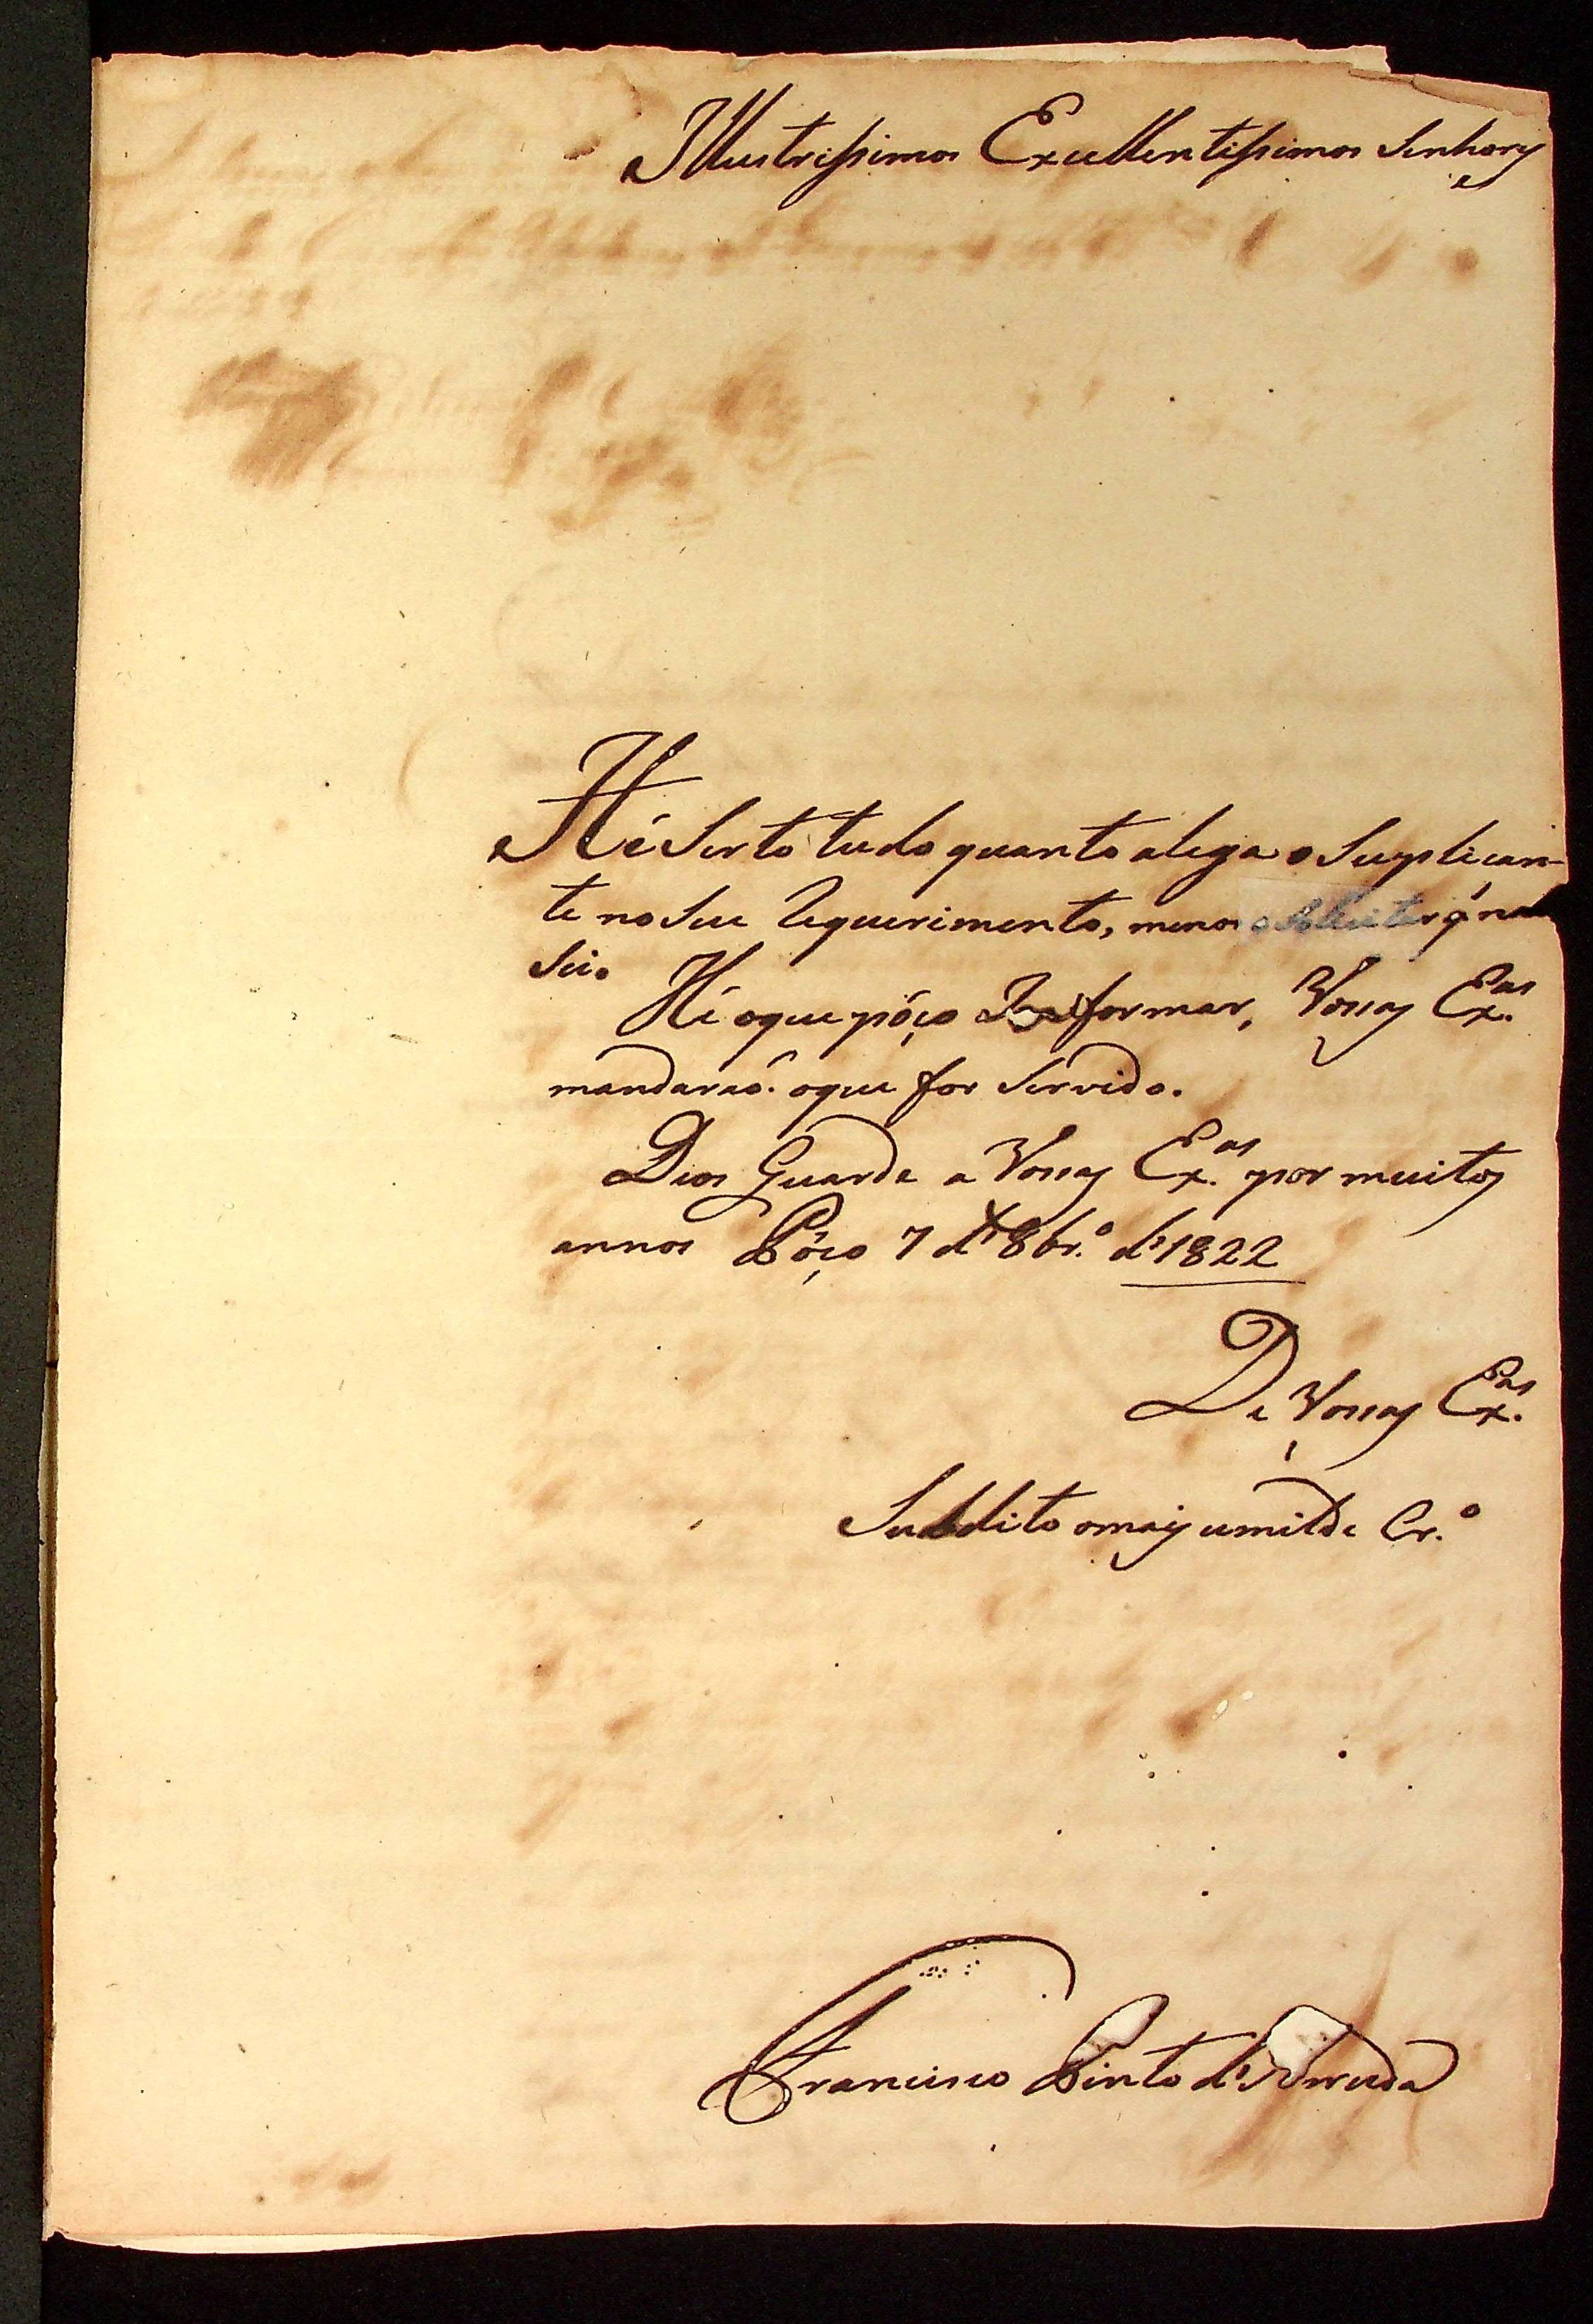 Illustrissimos Excellentissimos Senhores
Hé Serto tudo quanto alega o Suplican-
te no Seu Requerimento, menos q̃ não
Sei.
Hé oque póço Informar, Vossas Ex.as
mandaraó oque for Servido.
Deos Guarde a Vossas Ex.as por muitos
annos Póço 7 d' 8br.o d' 1822
De Vossas Ex.as
Subdito omais umilde Cr.o
Francisco Pinto d' Arruda